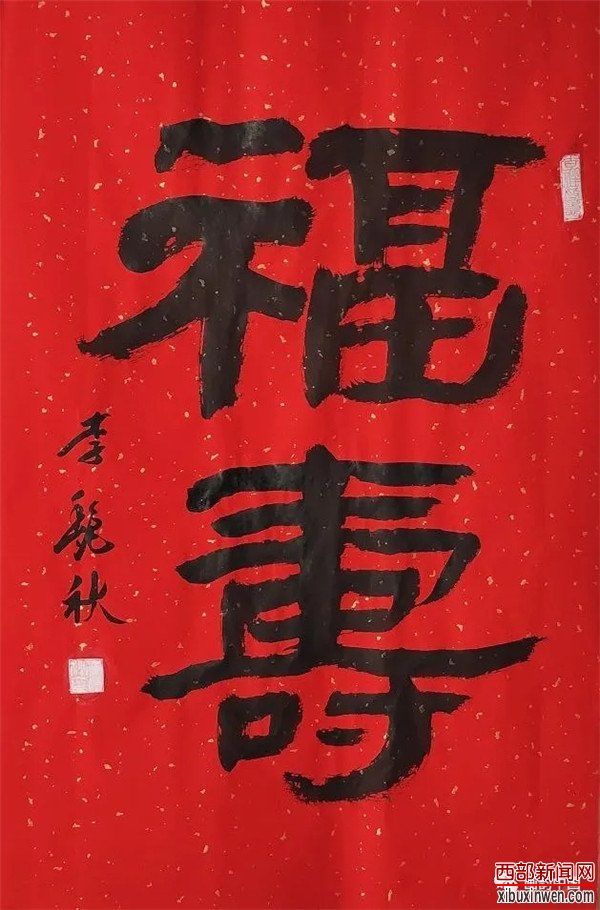 福壽
李艷秋
西部新闻网
xibuxinwen.com